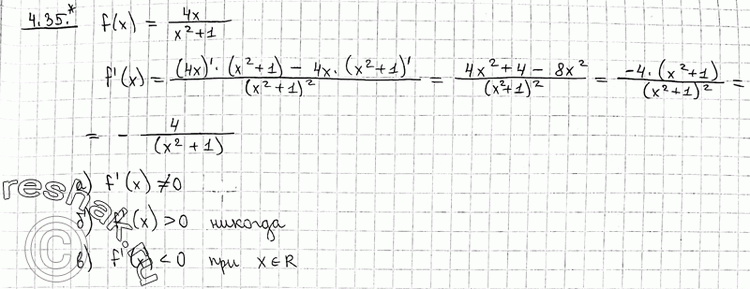 4.35.* f(x) = 4x / (x² + 1)
f'(x) = ((4x)' · (x² + 1) − 4x · (x² + 1)') / (x² + 1)² = (4x² + 4 − 8x²) / (x² + 1)² = (−4 · (x² + 1)) / (x² + 1)² =
= − 4 / (x² + 1)
а) f'(x) ≠ 0
б) f'(x) > 0 никогда
в) f'(x) < 0 при x ∈ R
reshak.ru
©